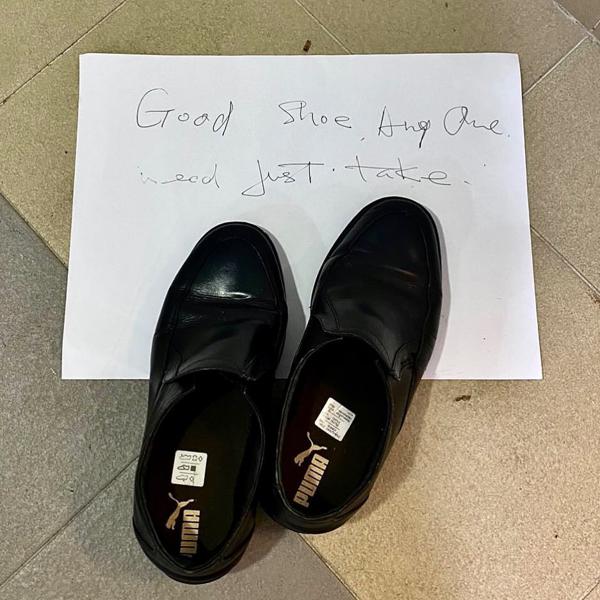 Good Shoe. Any One.
need just take.
PUMA
PUMA